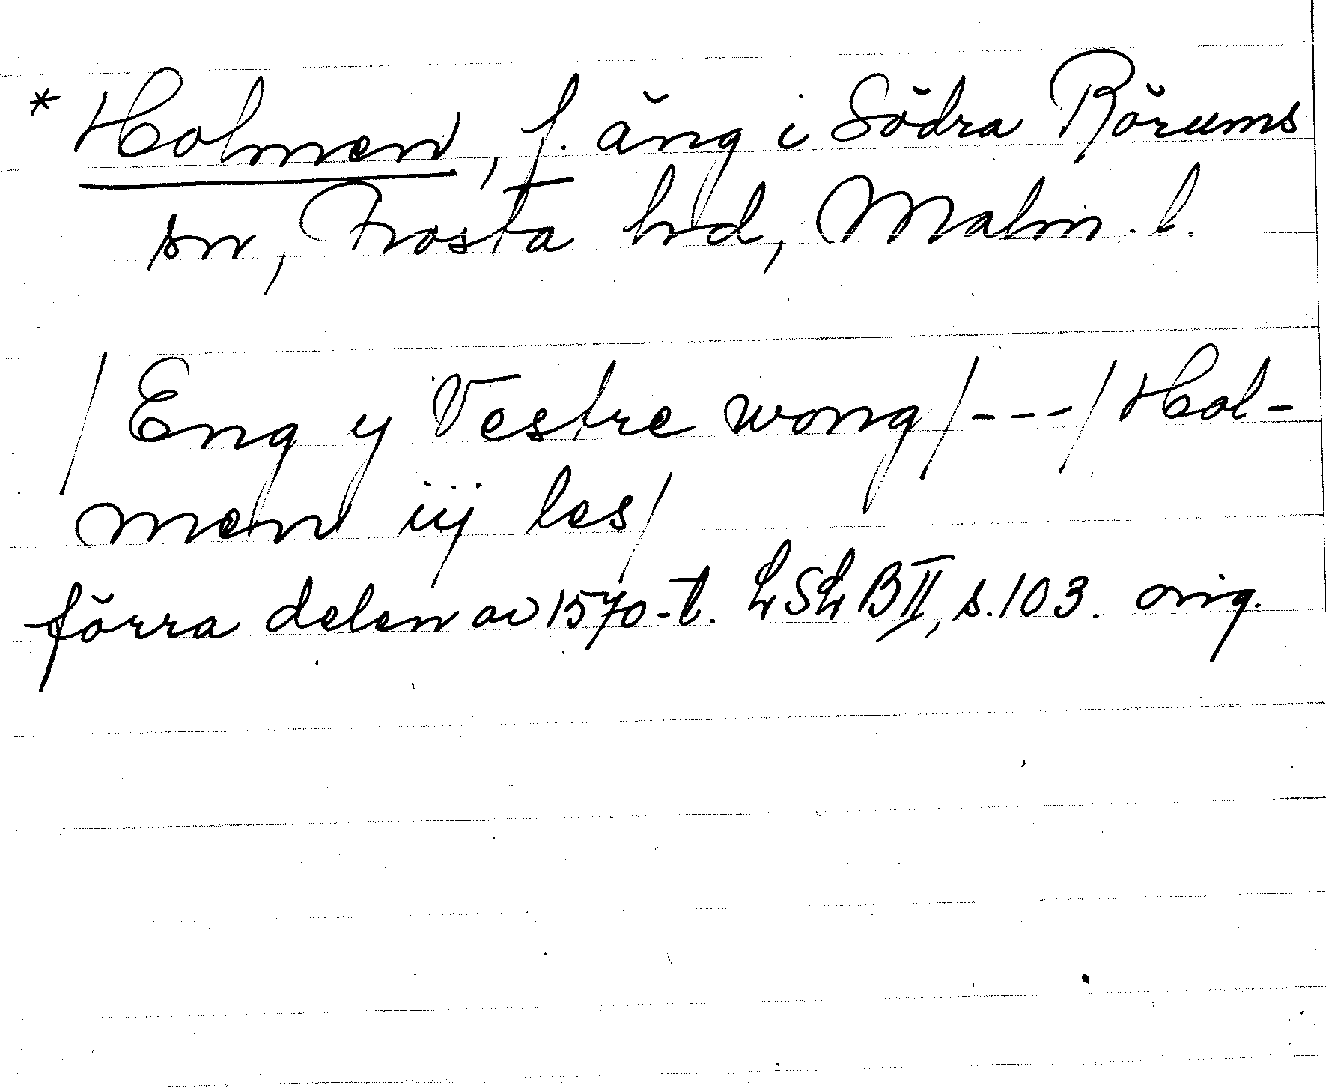 * Holmen, f. äng i Södra Rörums
sn, Frosta hd, Malm. l.
/Eng y Vestre wong/---/Hol-
men iij les/
förra delen av 1570-t. LSLB II, s. 103. orig.